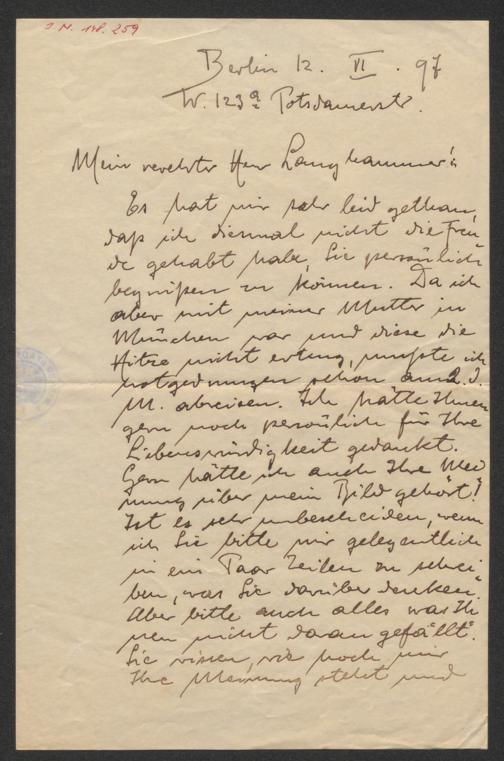 J. N. 148.259
Berlin 12. VI. 97
W. 123a Potsdamerstr.
Mein verehrter Herr Langhammer!
Es hat mir sehr leid gethan,
daß ich diesmal nicht die Freu
de gehabt habe, Sie persönlich
begrüßen zu können. Da ich
aber mit meiner Mutter in
München war und diese die
Hitze nicht ertrug, mußte ich
notgedrungen schon am 2. d.
M. abreisen. Ich hätte Ihnen
gern noch persönlich für Ihre
Liebenswürdigkeit gedankt.
Gern hätte ich auch Ihre Mei
nung über mein Bild gehört!
Ist es sehr unbescheiden, wenn
ich Sie bitte mir gelegentlich
in ein Paar Zeilen zu schrei
ben, was Sie darüber denken.
Aber bitte auch alles was Ih
nen nicht daran gefällt.
Sie wissen, wie hoch mir
Ihre Meinung steht und